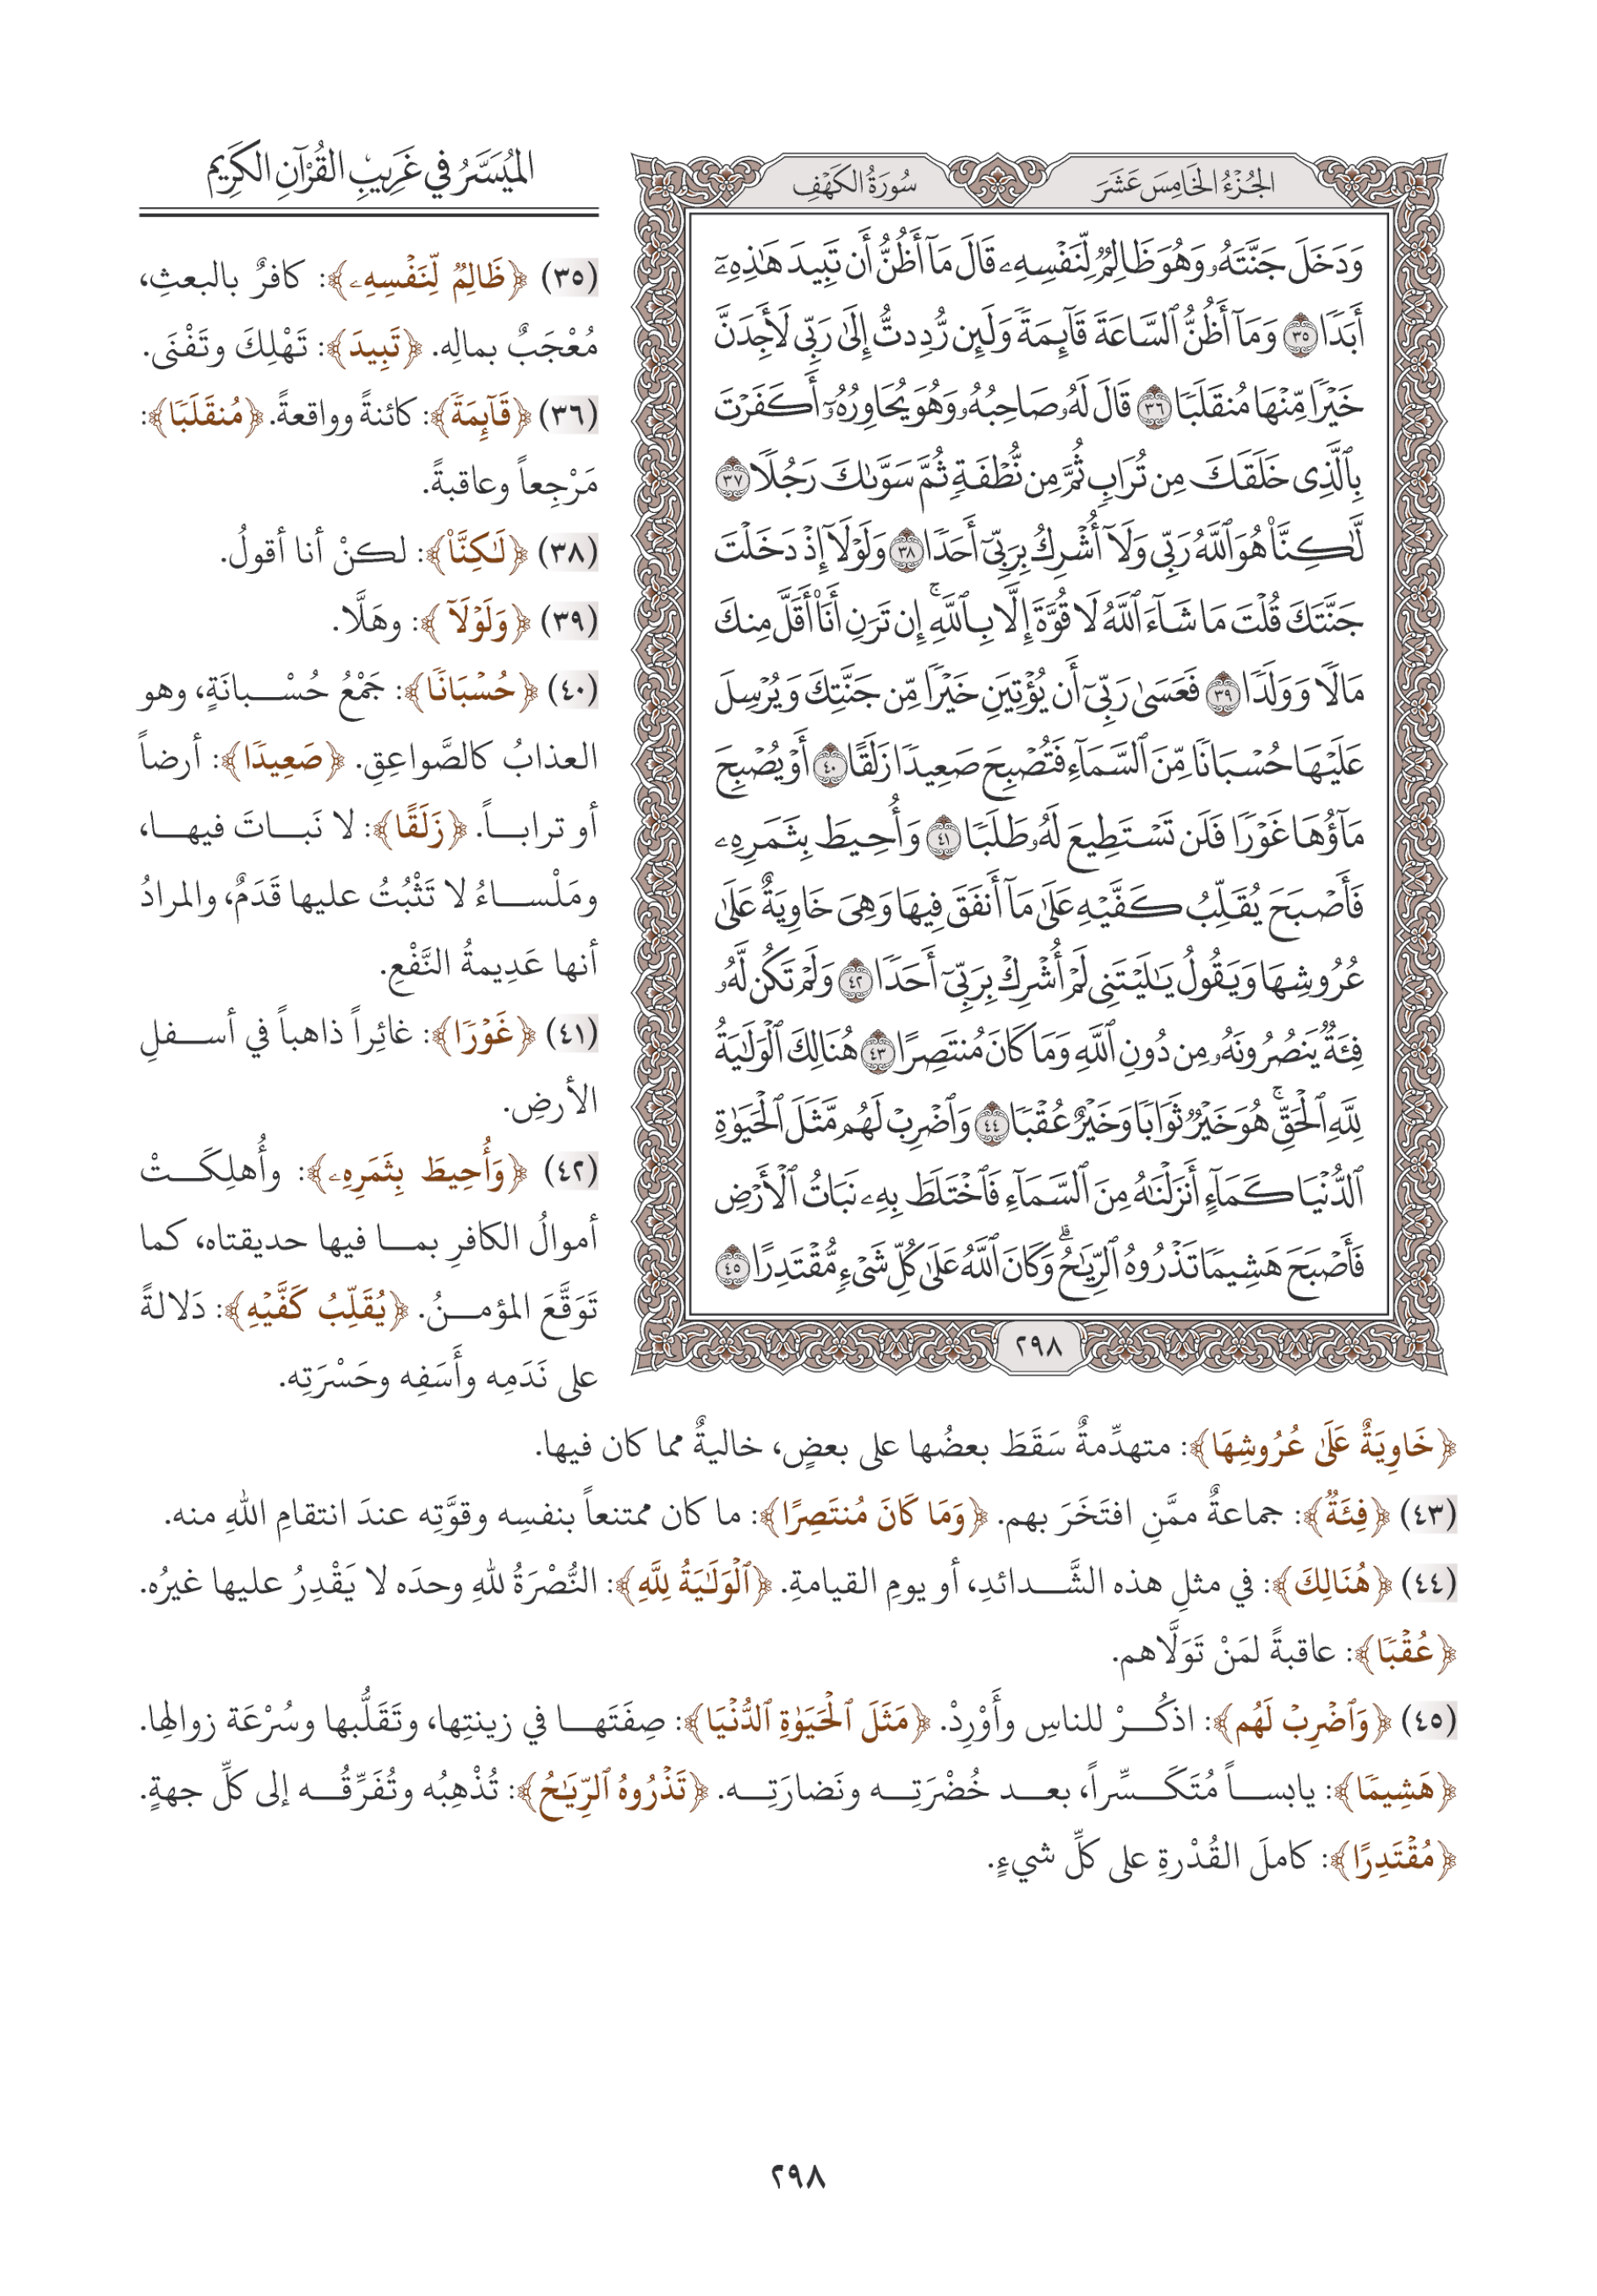 الميسَّرُ في غَرِيبِ القُرْآنِ الكَرِيم
الجُزْءُ الخَامِسَ عَشَرَ
سُورَةُ الكَهْفِ
وَدَخَلَ جَنَّتَهُۥ وَهُوَ ظَالِمٞ لِّنَفۡسِهِۦ قَالَ مَآ أَظُنُّ أَن تَبِيدَ هَٰذِهِۦٓ
أَبَدٗا ٣٥ وَمَآ أَظُنُّ ٱلسَّاعَةَ قَآئِمَةٗ وَلَئِن رُّدِدتُّ إِلَىٰ رَبِّي لَأَجِدَنَّ
خَيۡرٗا مِّنۡهَا مُنقَلَبٗا ٣٦ قَالَ لَهُۥ صَاحِبُهُۥ وَهُوَ يُحَاوِرُهُۥٓ أَكَفَرۡتَ
بِٱلَّذِي خَلَقَكَ مِن تُرَابٖ ثُمَّ مِن نُّطۡفَةٖ ثُمَّ سَوَّىٰكَ رَجُلٗا ٣٧
لَّٰكِنَّا۠ هُوَ ٱللَّهُ رَبِّي وَلَآ أُشۡرِكُ بِرَبِّيٓ أَحَدٗا ٣٨ وَلَوۡلَآ إِذۡ دَخَلۡتَ
جَنَّتَكَ قُلۡتَ مَا شَآءَ ٱللَّهُ لَا قُوَّةَ إِلَّا بِٱللَّهِۚ إِن تَرَنِ أَنَا۠ أَقَلَّ مِنكَ
مَالٗا وَوَلَدٗا ٣٩ فَعَسَىٰ رَبِّيٓ أَن يُؤۡتِيَنِ خَيۡرٗا مِّن جَنَّتِكَ وَيُرۡسِلَ
عَلَيۡهَا حُسۡبَانٗا مِّنَ ٱلسَّمَآءِ فَتُصۡبِحَ صَعِيدٗا زَلَقًا ٤٠ أَوۡ يُصۡبِحَ
مَآؤُهَا غَوۡرٗا فَلَن تَسۡتَطِيعَ لَهُۥ طَلَبٗا ٤١ وَأُحِيطَ بِثَمَرِهِۦ
فَأَصۡبَحَ يُقَلِّبُ كَفَّيۡهِ عَلَىٰ مَآ أَنفَقَ فِيهَا وَهِيَ خَاوِيَةٌ عَلَىٰ
عُرُوشِهَا وَيَقُولُ يَٰلَيۡتَنِي لَمۡ أُشۡرِكۡ بِرَبِّيٓ أَحَدٗا ٤٢ وَلَمۡ تَكُن لَّهُۥ
فِئَةٞ يَنصُرُونَهُۥ مِن دُونِ ٱللَّهِ وَمَا كَانَ مُنتَصِرًا ٤٣ هُنَالِكَ ٱلۡوَلَٰيَةُ
لِلَّهِ ٱلۡحَقِّۚ هُوَ خَيۡرٞ ثَوَابٗا وَخَيۡرٌ عُقۡبٗا ٤٤ وَٱضۡرِبۡ لَهُم مَّثَلَ ٱلۡحَيَوٰةِ
ٱلدُّنۡيَا كَمَآءٍ أَنزَلۡنَٰهُ مِنَ ٱلسَّمَآءِ فَٱخۡتَلَطَ بِهِۦ نَبَاتُ ٱلۡأَرۡضِ
فَأَصۡبَحَ هَشِيمٗا تَذۡرُوهُ ٱلرِّيَٰحُۗ وَكَانَ ٱللَّهُ عَلَىٰ كُلِّ شَيۡءٖ مُّقۡتَدِرًا ٤٥
٢٩٨
(٣٥) ﴿ظَالِمٞ لِّنَفۡسِهِۦ﴾: كافرٌ بالبعثِ،
مُعْجَبٌ بمالِه. ﴿تَبِيدَ﴾: تَهْلِكَ وتَفْنَى.
(٣٦) ﴿قَآئِمَةٗ﴾: كائنةً وواقعةً. ﴿مُنقَلَبٗا﴾:
مَرْجِعاً وعاقبةً.
(٣٨) ﴿لَّٰكِنَّا۠﴾: لكنْ أنا أقولُ.
(٣٩) ﴿وَلَوۡلَآ﴾: وهَلَّا.
(٤٠) ﴿حُسۡبَانٗا﴾: جَمْعُ حُسْبانَةٍ، وهو
العذابُ كالصَّواعِقِ. ﴿صَعِيدٗا﴾: أرضاً
أو تراباً. ﴿زَلَقًا﴾: لا نَباتَ فيها،
ومَلْساءُ لا تَثْبُتُ عليها قَدَمٌ، والمرادُ
أنها عَدِيمةُ النَّفْعِ.
(٤١) ﴿غَوۡرٗا﴾: غائِراً ذاهباً في أسفلِ
الأرضِ.
(٤٢) ﴿وَأُحِيطَ بِثَمَرِهِۦ﴾: وأُهلِكَتْ
أموالُ الكافرِ بما فيها حديقتاه، كما
تَوَقَّعَ المؤمنُ. ﴿يُقَلِّبُ كَفَّيۡهِ﴾: دَلالةً
على نَدَمِه وأَسَفِه وحَسْرَتِه.
﴿خَاوِيَةٌ عَلَىٰ عُرُوشِهَا﴾: متهدِّمةٌ سَقَطَ بعضُها على بعضٍ، خاليةٌ مما كان فيها.
(٤٣) ﴿فِئَةٞ﴾: جماعةٌ ممَّنِ افتَخَرَ بهم. ﴿وَمَا كَانَ مُنتَصِرًا﴾: ما كان ممتنعاً بنفسِه وقوَّتِه عندَ انتقامِ اللهِ منه.
(٤٤) ﴿هُنَالِكَ﴾: في مثلِ هذه الشَّدائدِ، أو يومِ القيامةِ. ﴿ٱلۡوَلَٰيَةُ لِلَّهِ﴾: النُّصْرَةُ للهِ وحدَه لا يَقْدِرُ عليها غيرُه.
﴿عُقۡبٗا﴾: عاقبةً لمَنْ تَوَلَّاهم.
(٤٥) ﴿وَٱضۡرِبۡ لَهُم﴾: اذكُرْ للناسِ وأَوْرِدْ. ﴿مَثَلَ ٱلۡحَيَوٰةِ ٱلدُّنۡيَا﴾: صِفَتَها في زينتِها، وتَقَلُّبها وسُرْعَة زوالِها.
﴿هَشِيمٗا﴾: يابساً مُتَكَسِّراً، بعد خُضْرَتِه ونَضارَتِه. ﴿تَذۡرُوهُ ٱلرِّيَٰحُ﴾: تُذْهِبُه وتُفَرِّقُه إلى كلِّ جهةٍ.
﴿مُقۡتَدِرًا﴾: كاملَ القُدْرةِ على كلِّ شيءٍ.
٢٩٨